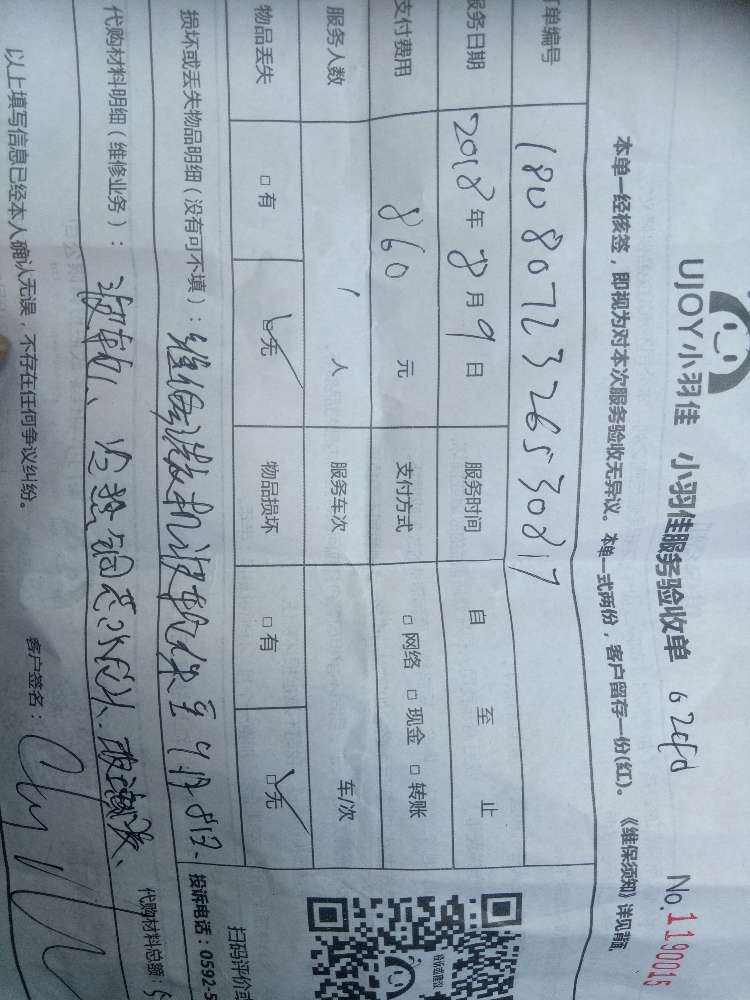 UJOY小羽佳 小羽佳服务验收单 62efd No.1190015
本单一经核签，即视为对本次服务验收无异议。本单一式两份，客户留存一份(红)。《维保须知》详见背面
订单编号 1808072326530817
服务日期 2018年8月9日 服务时间 自 至 止
支付费用 860元 支付方式 □网络 □现金 □转账
服务人数 1人 服务车次 车/次
物品丢失 □有 ☑无 物品损坏 □有 ☑无
损坏或丢失物品明细（没有可不填）：
至9月8日、
投诉电话：0592-5
扫码评价或
代购材料明细（维修业务）：
代购材料总额：
以上填写信息已经本人确认无误，不存在任何争议纠纷。
客户签名：